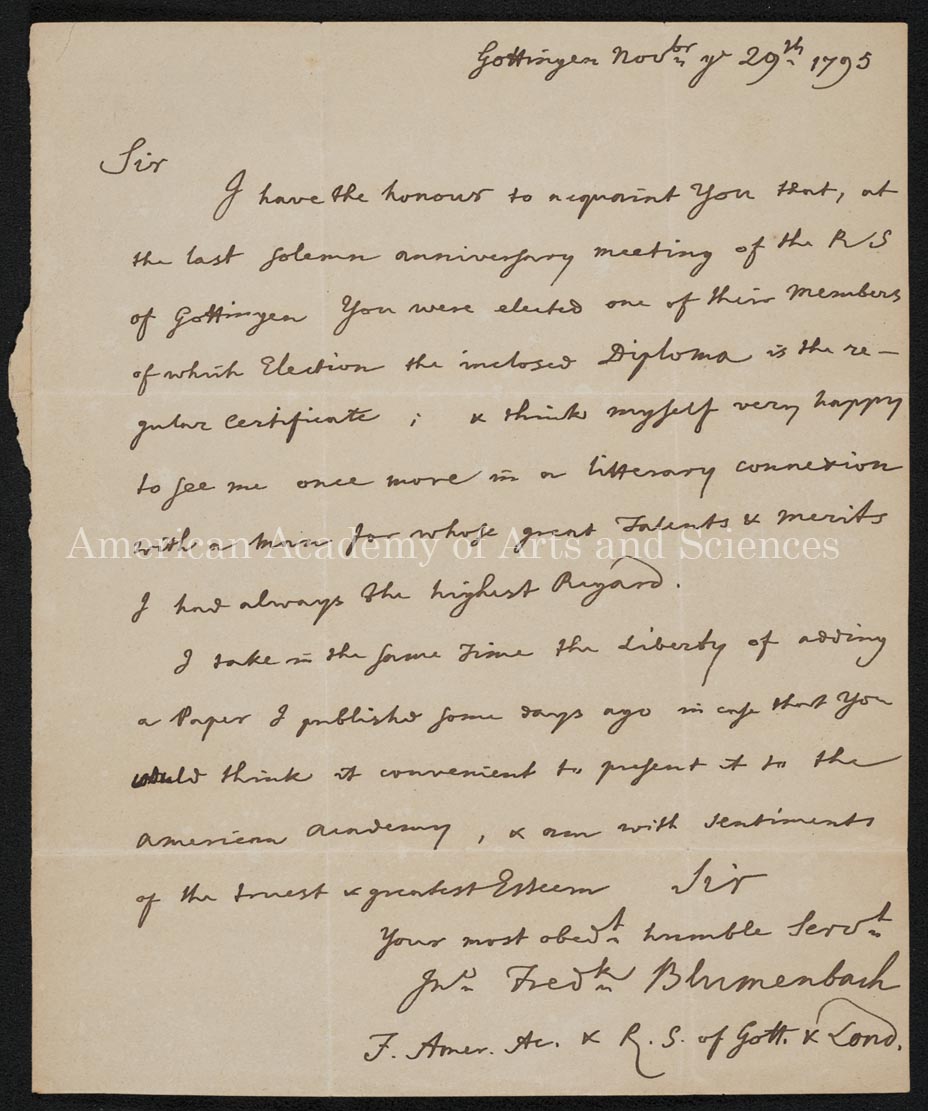 Gottingen Novbr ye 29th 1795
Sir
I have the honour to acquaint You that, at
the last solemn anniversary meeting of the R S
of Gottingen You were elected one of their Members
of which Election the inclosed Diploma is the re-
gular Certificate ; & think myself very happy
to see me once more in a litterary connexion
with a Man for whose great Talents & merits
American Academy of Arts and Sciences
I had always the highest Regard.
I take in the same Time the Liberty of adding
a Paper I published some days ago in case that You
would think it convenient to present it to the
American Academy, & am with sentiments
of the truest & greatest Esteem Sir
Your most obedt humble Servt
Jno Fredk Blumenbach
F. Amer. Ac. & R. S. of Gott. & Lond.